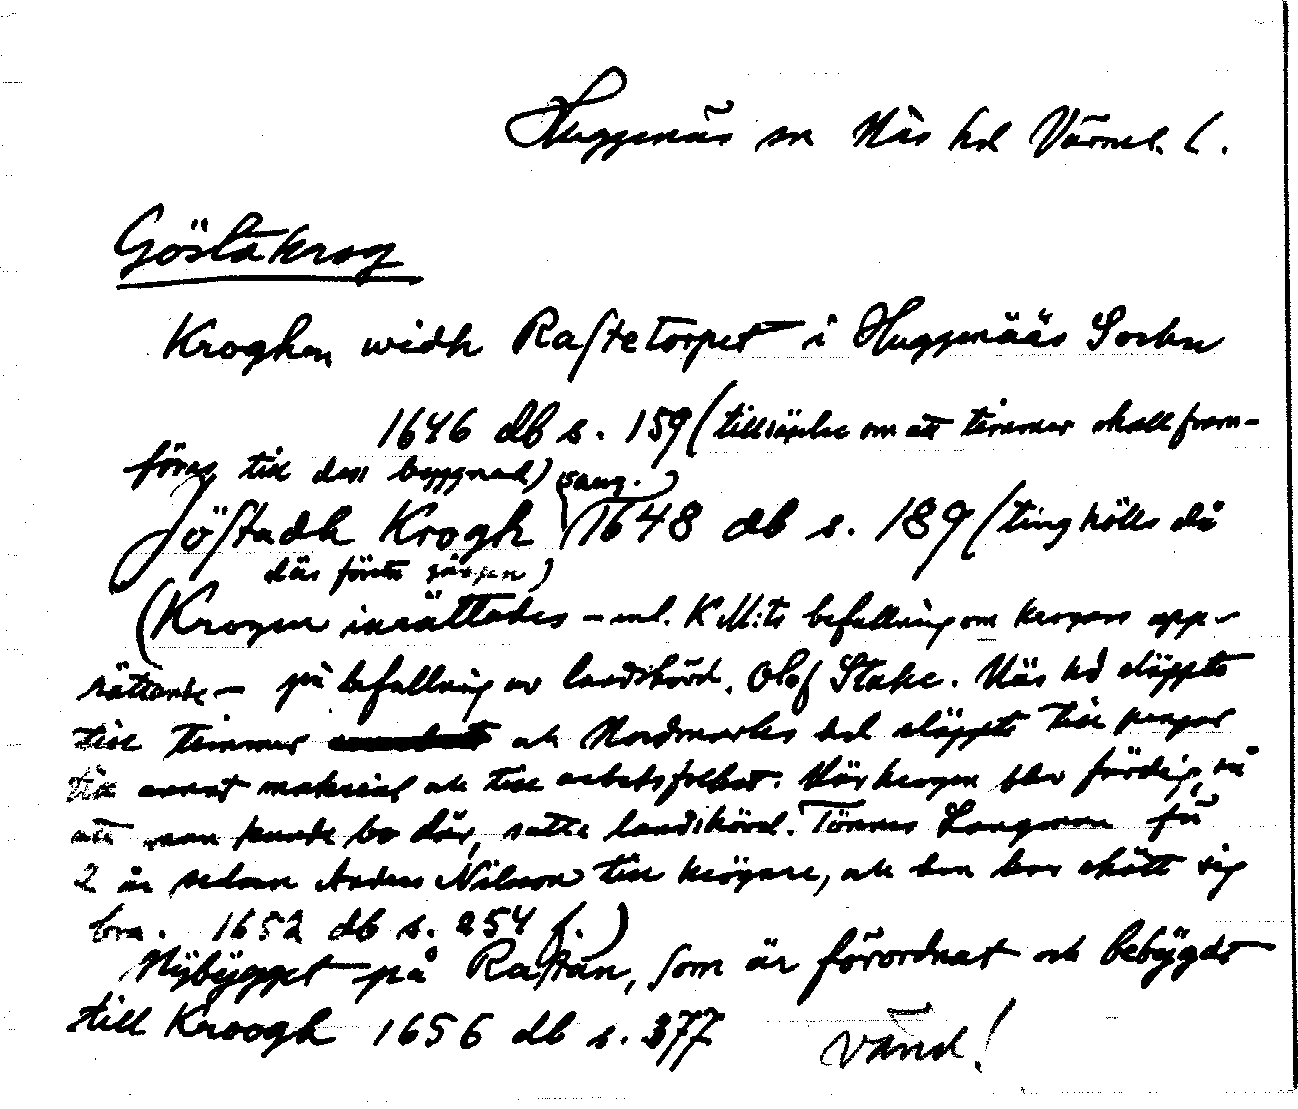 Huggenäs sn Näs hd Värml. l.
Göstakrog
Kroghen widh Rastetorpet i Huggenääs Sochn
1646 db s. 159 (tillsägelse om att timmer skall fram-
föras till dess byggnad)
Jöstadh Krogh 1648 db s. 189 (ting hölls då
där första gången)
(Krogen inrättades – enl. K M:ts befallning om krogars upp-
rättande – på befallning av landshövd. Olof Stake. Näs hd släppte
till timmer och Nordmarks hd släppte till pengar
till annat material och till arbetsfolket. När krogen blev färdig, så
att man kunde bo där, satte landshövd. Tönnes Langman för
2 år sedan Anders Nilsson till krögare, och han har skött sig
bra. 1652 db s. 254 f.)
Nybygget på Rastan, som är förordnat och bebygdt
till Kroogh 1656 db s. 377
vänd!